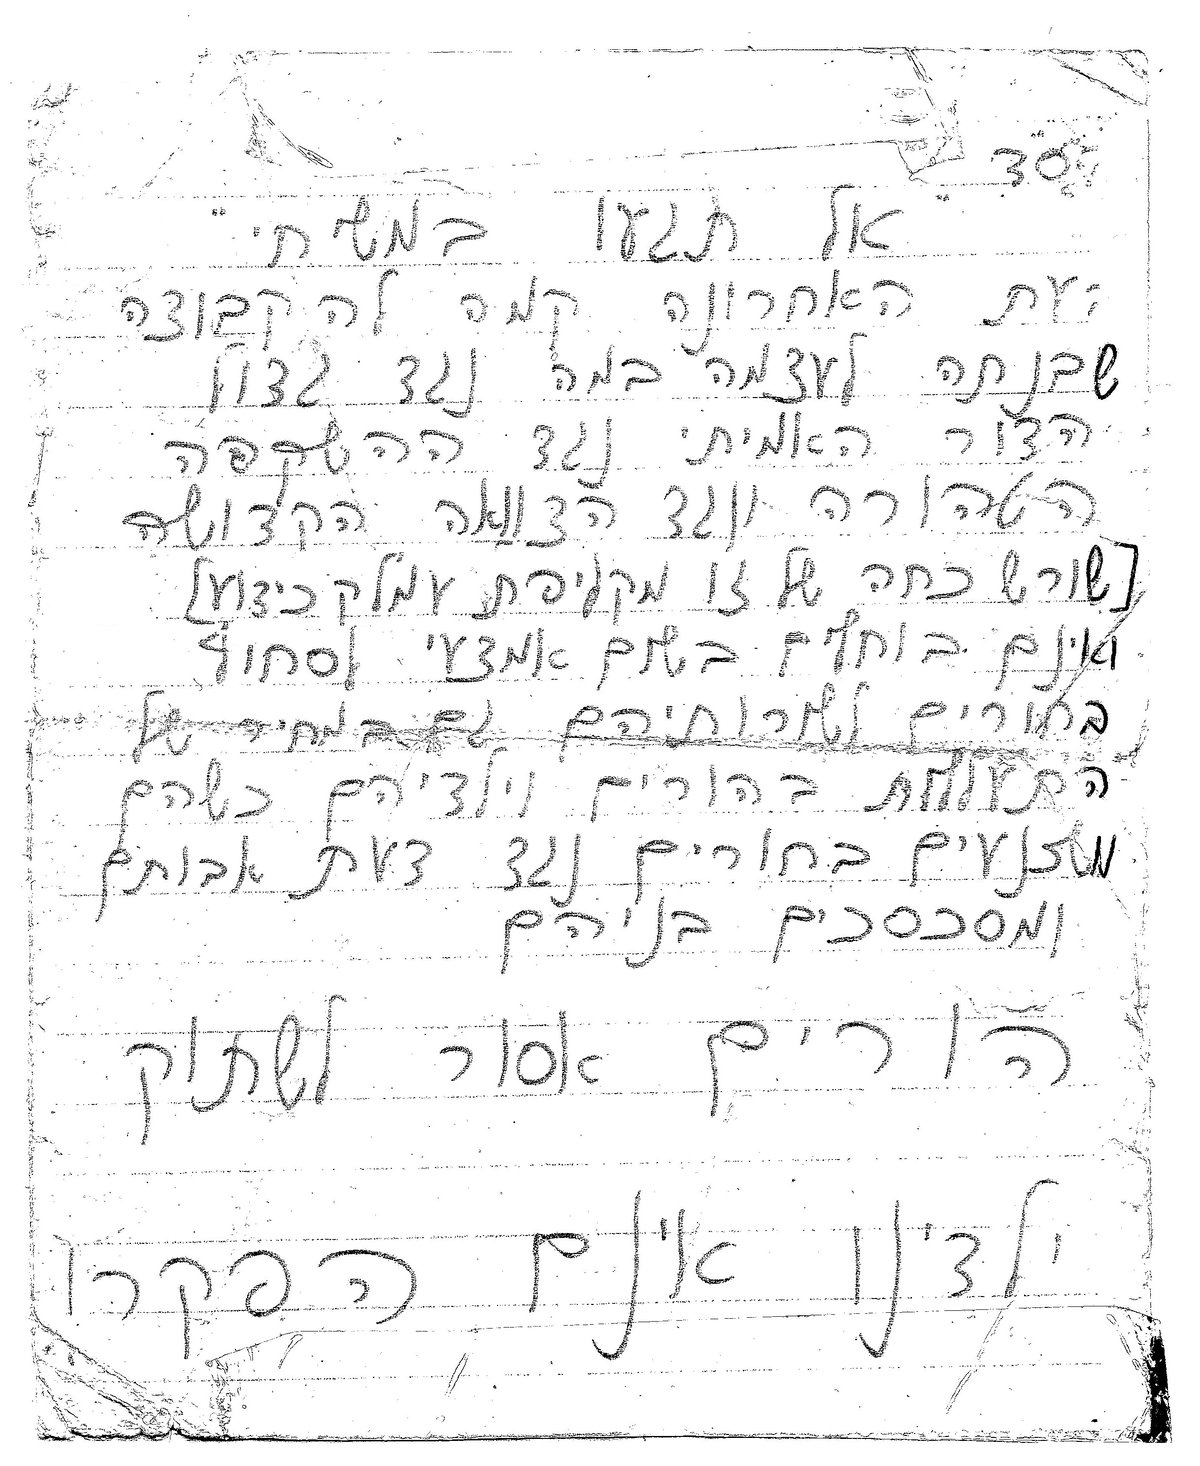 בס"ד
"אל תגעו במשיחי"
בעת האחרונה קמה לה קבוצה
שבנתה לעצמה במה נגד גדולי
הדור האמיתי נגד ההשקפה
הטהורה ונגד הצוואה הקדושה
[שורש כחה של זו מקליפת עמלק כידוע]
ואינם בוחלים בשום אמצעי לסחוף
בחורים לשורותיהם גם במחיר של
התעללות בהורים וילדיהם כשהם
משכנעים בחורים נגד דעת אבותם
ומסכסכים בניהם
הורים אסור לשתוק
ילדינו אינם הפקרו